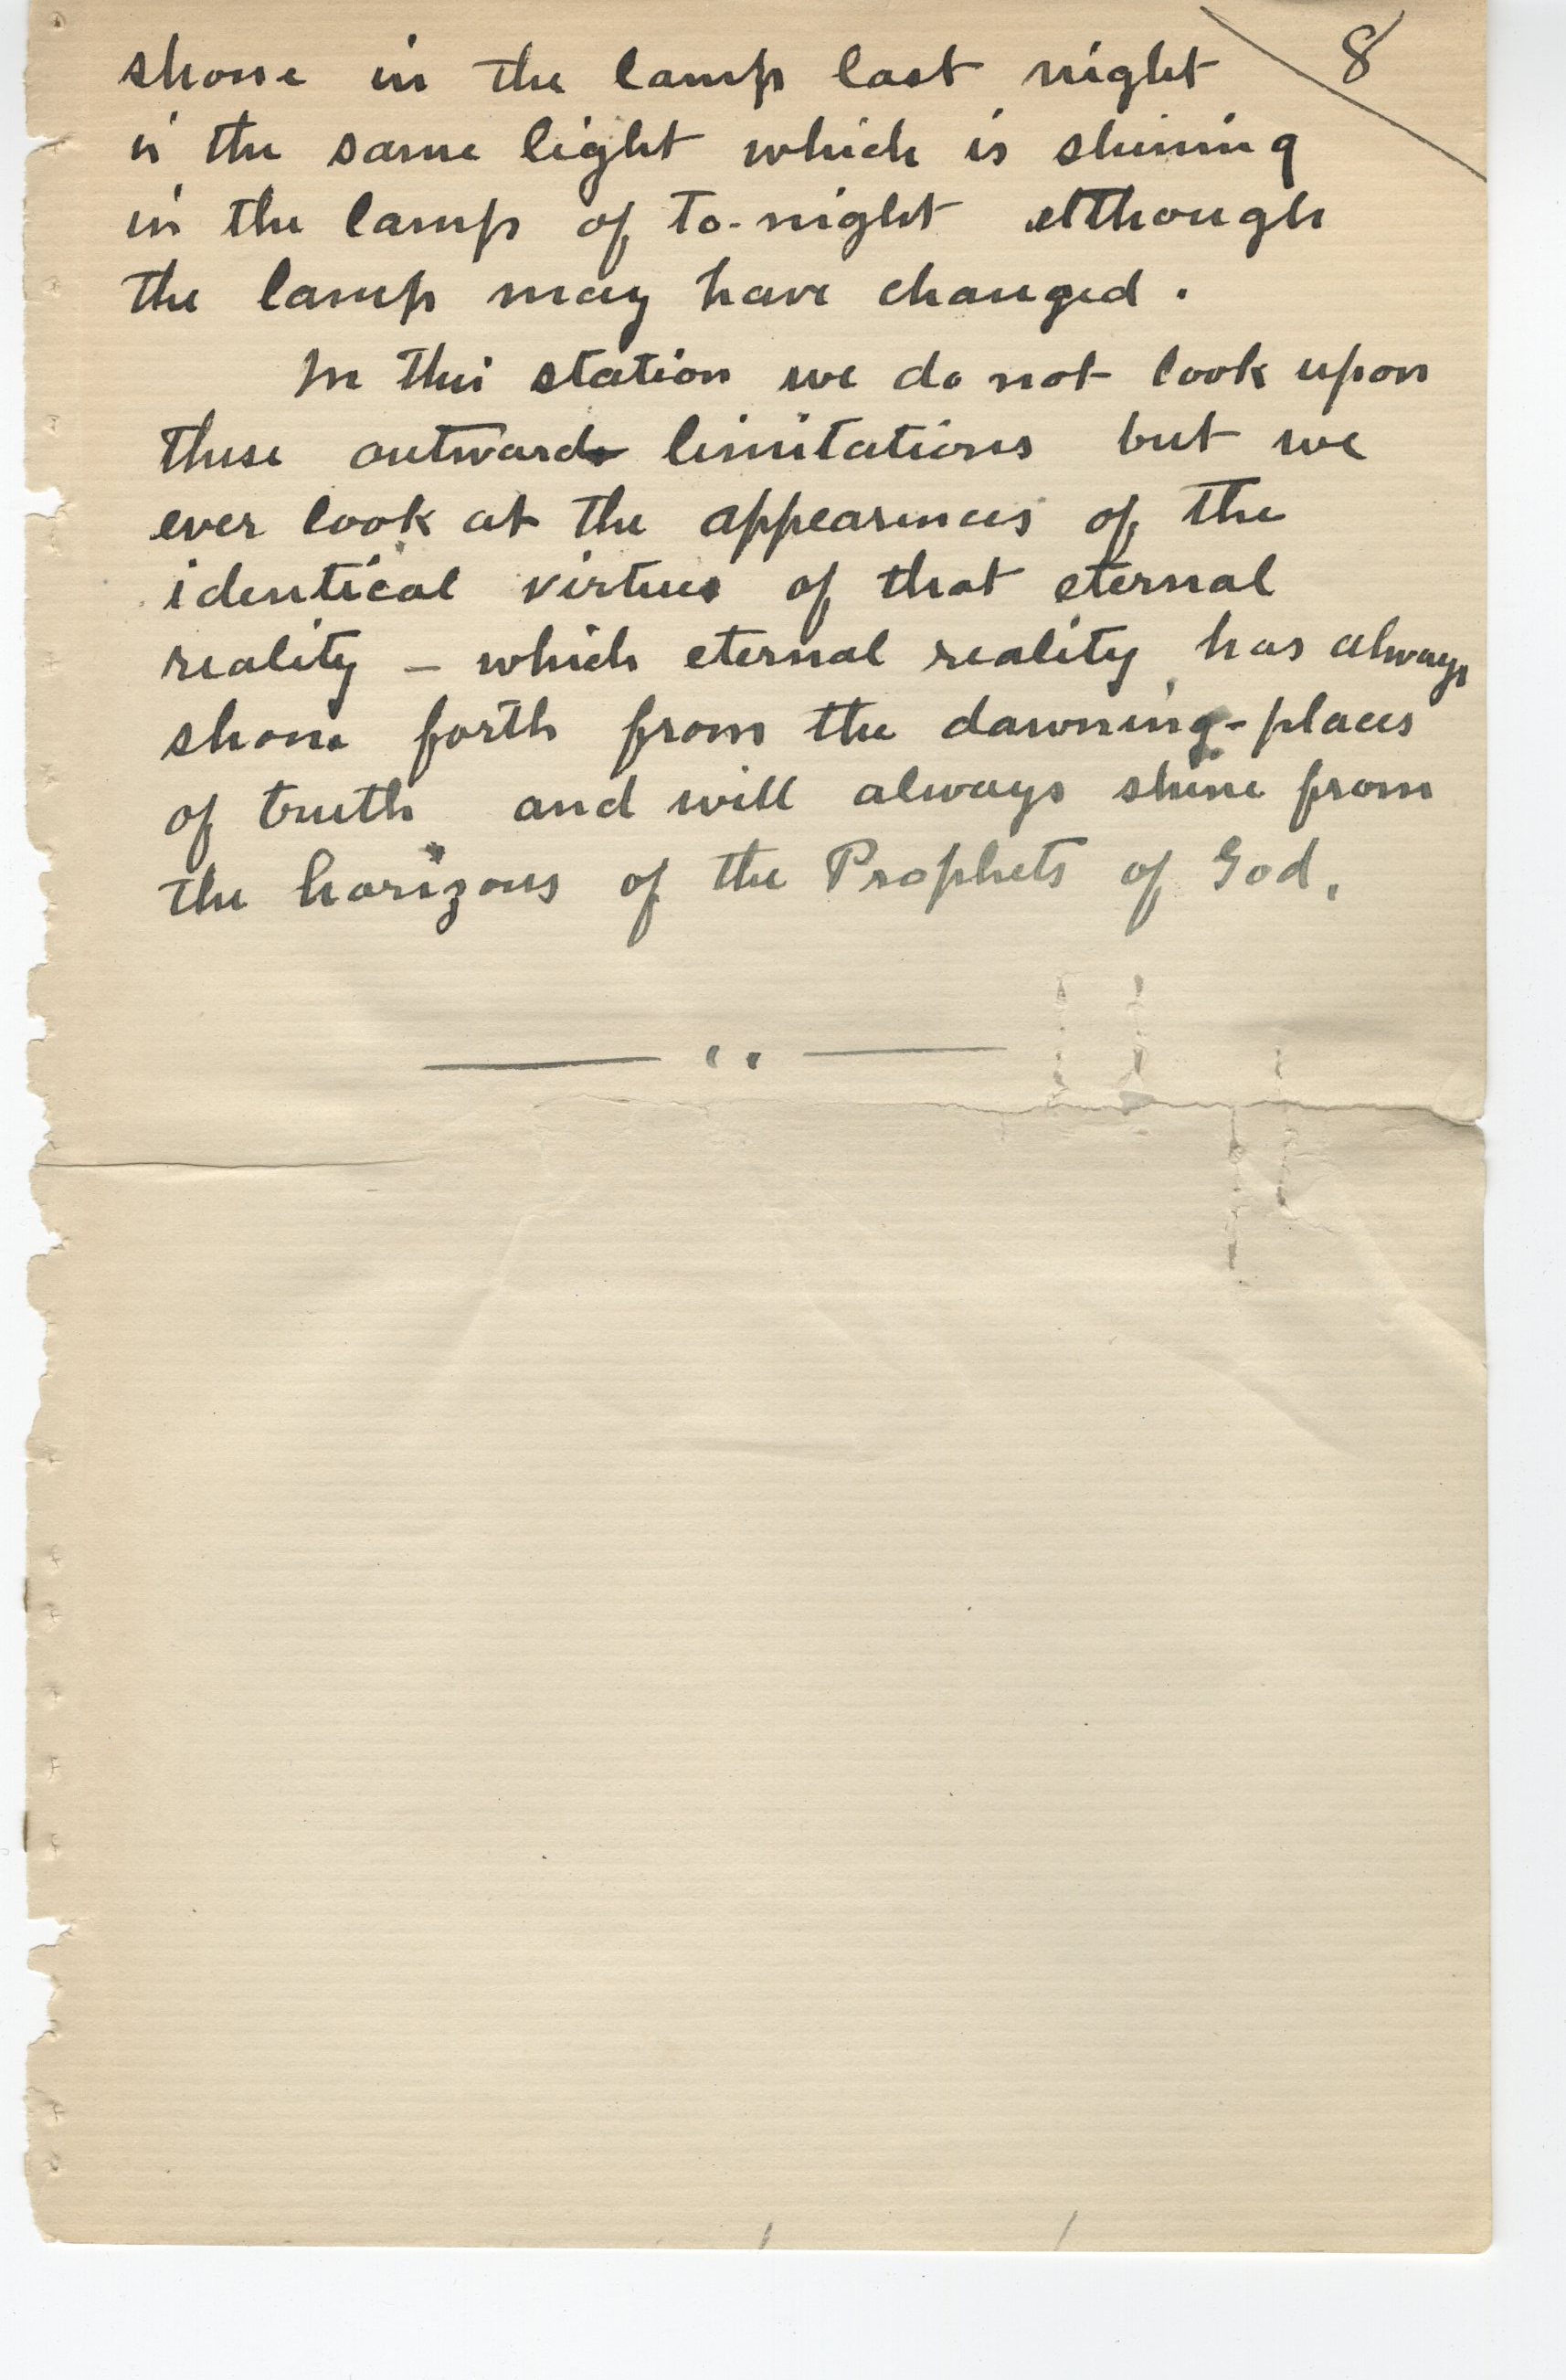 8
shone in the lamp last night
is the same light which is shining
in the lamp of to-night although
the lamp may have changed.
In this station we do not look upon
these outward limitations but we
ever look at the appearances of the
identical virtues of that eternal
reality – which eternal reality has always
shone forth from the dawning-places
of truth and will always shine from
the horizons of the Prophets of God.